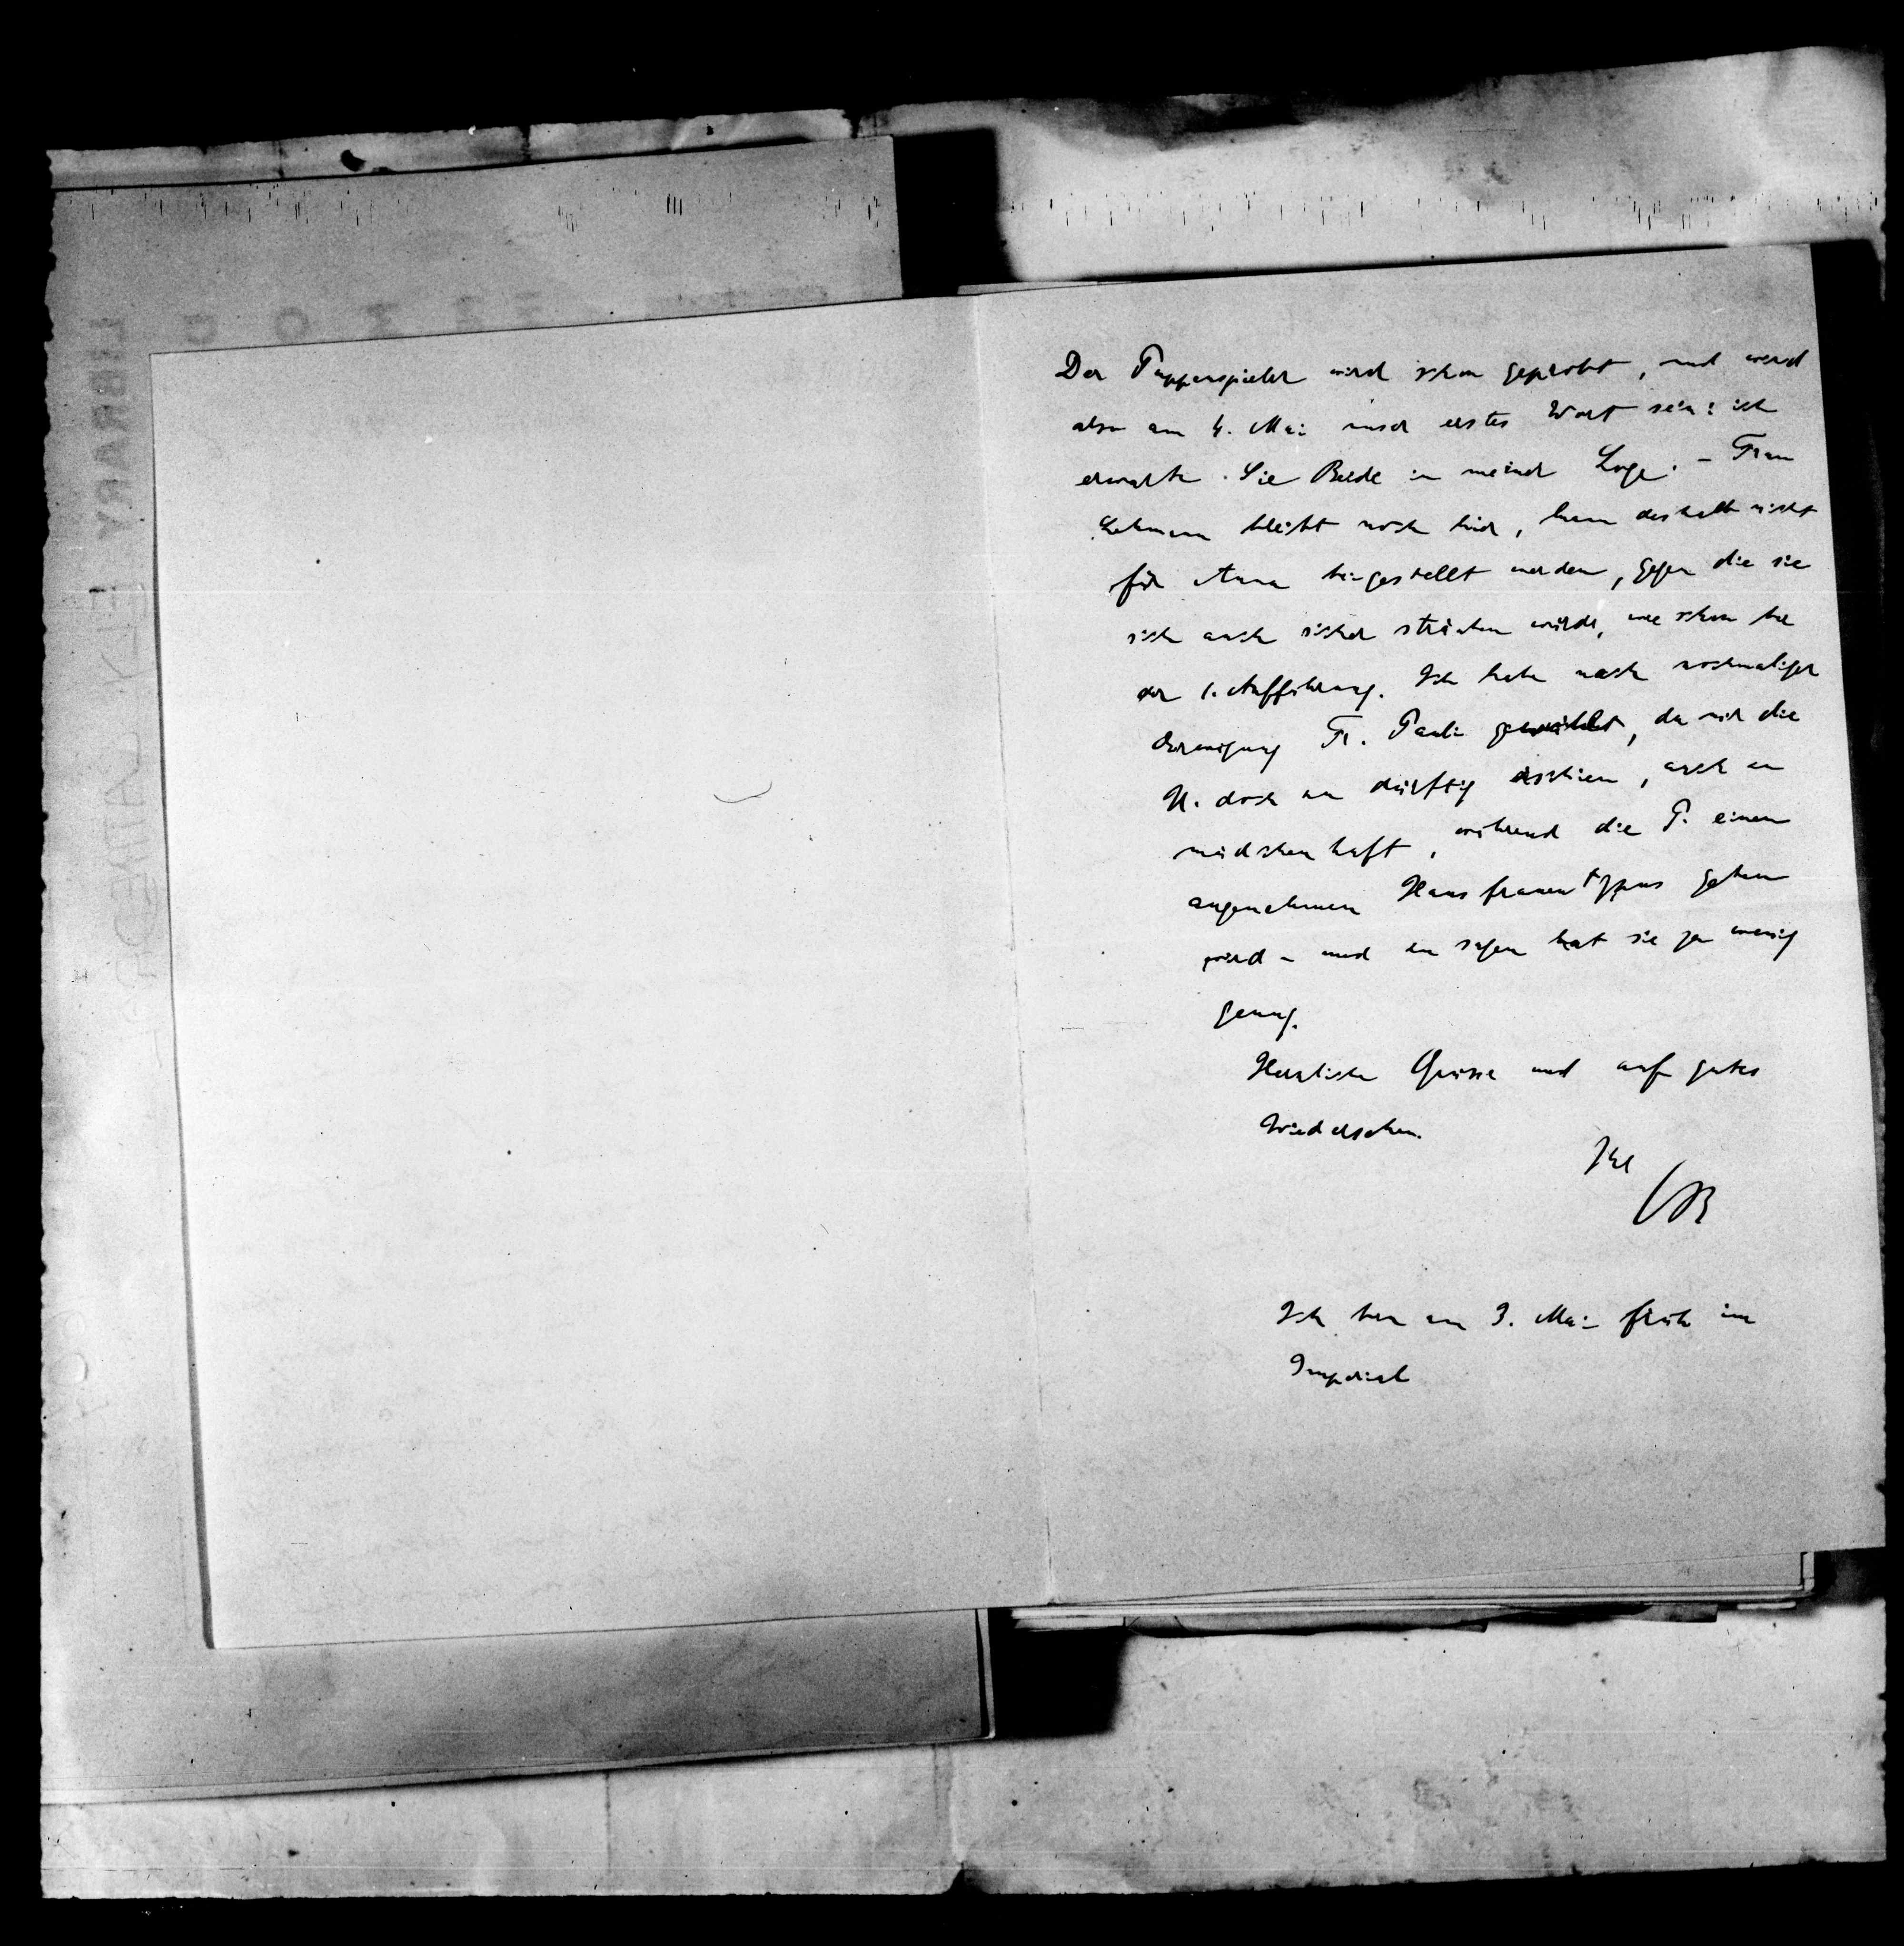 Der Puppenspieler wird schon geprobt, und wird
also am 4. Mai unser erstes Wort sein: ich
erwarte Sie Beide in meiner Loge. – Frau
Lehmann bleibt noch hier, kann deshalb nicht
für Anna hingestellt werden, gegen die sie
sich auch sicher sträuben würde, wie schon bei
der 1. Aufführung. Ich habe nach nochmaliger
Erwägung Fr. Pauli gewählt, da mir die
H. doch zu dürftig erschien, auch zu
mädchenhaft, während die P. einen
angenehmen Hausfrauentypus geben
wird – und zu sagen hat sie ja wenig
genug.
Herzliche Grüsse und auf gutes
Wiedersehen.
Ihr
Ich bin am 3. Mai früh im
Imperial
LIBRARY